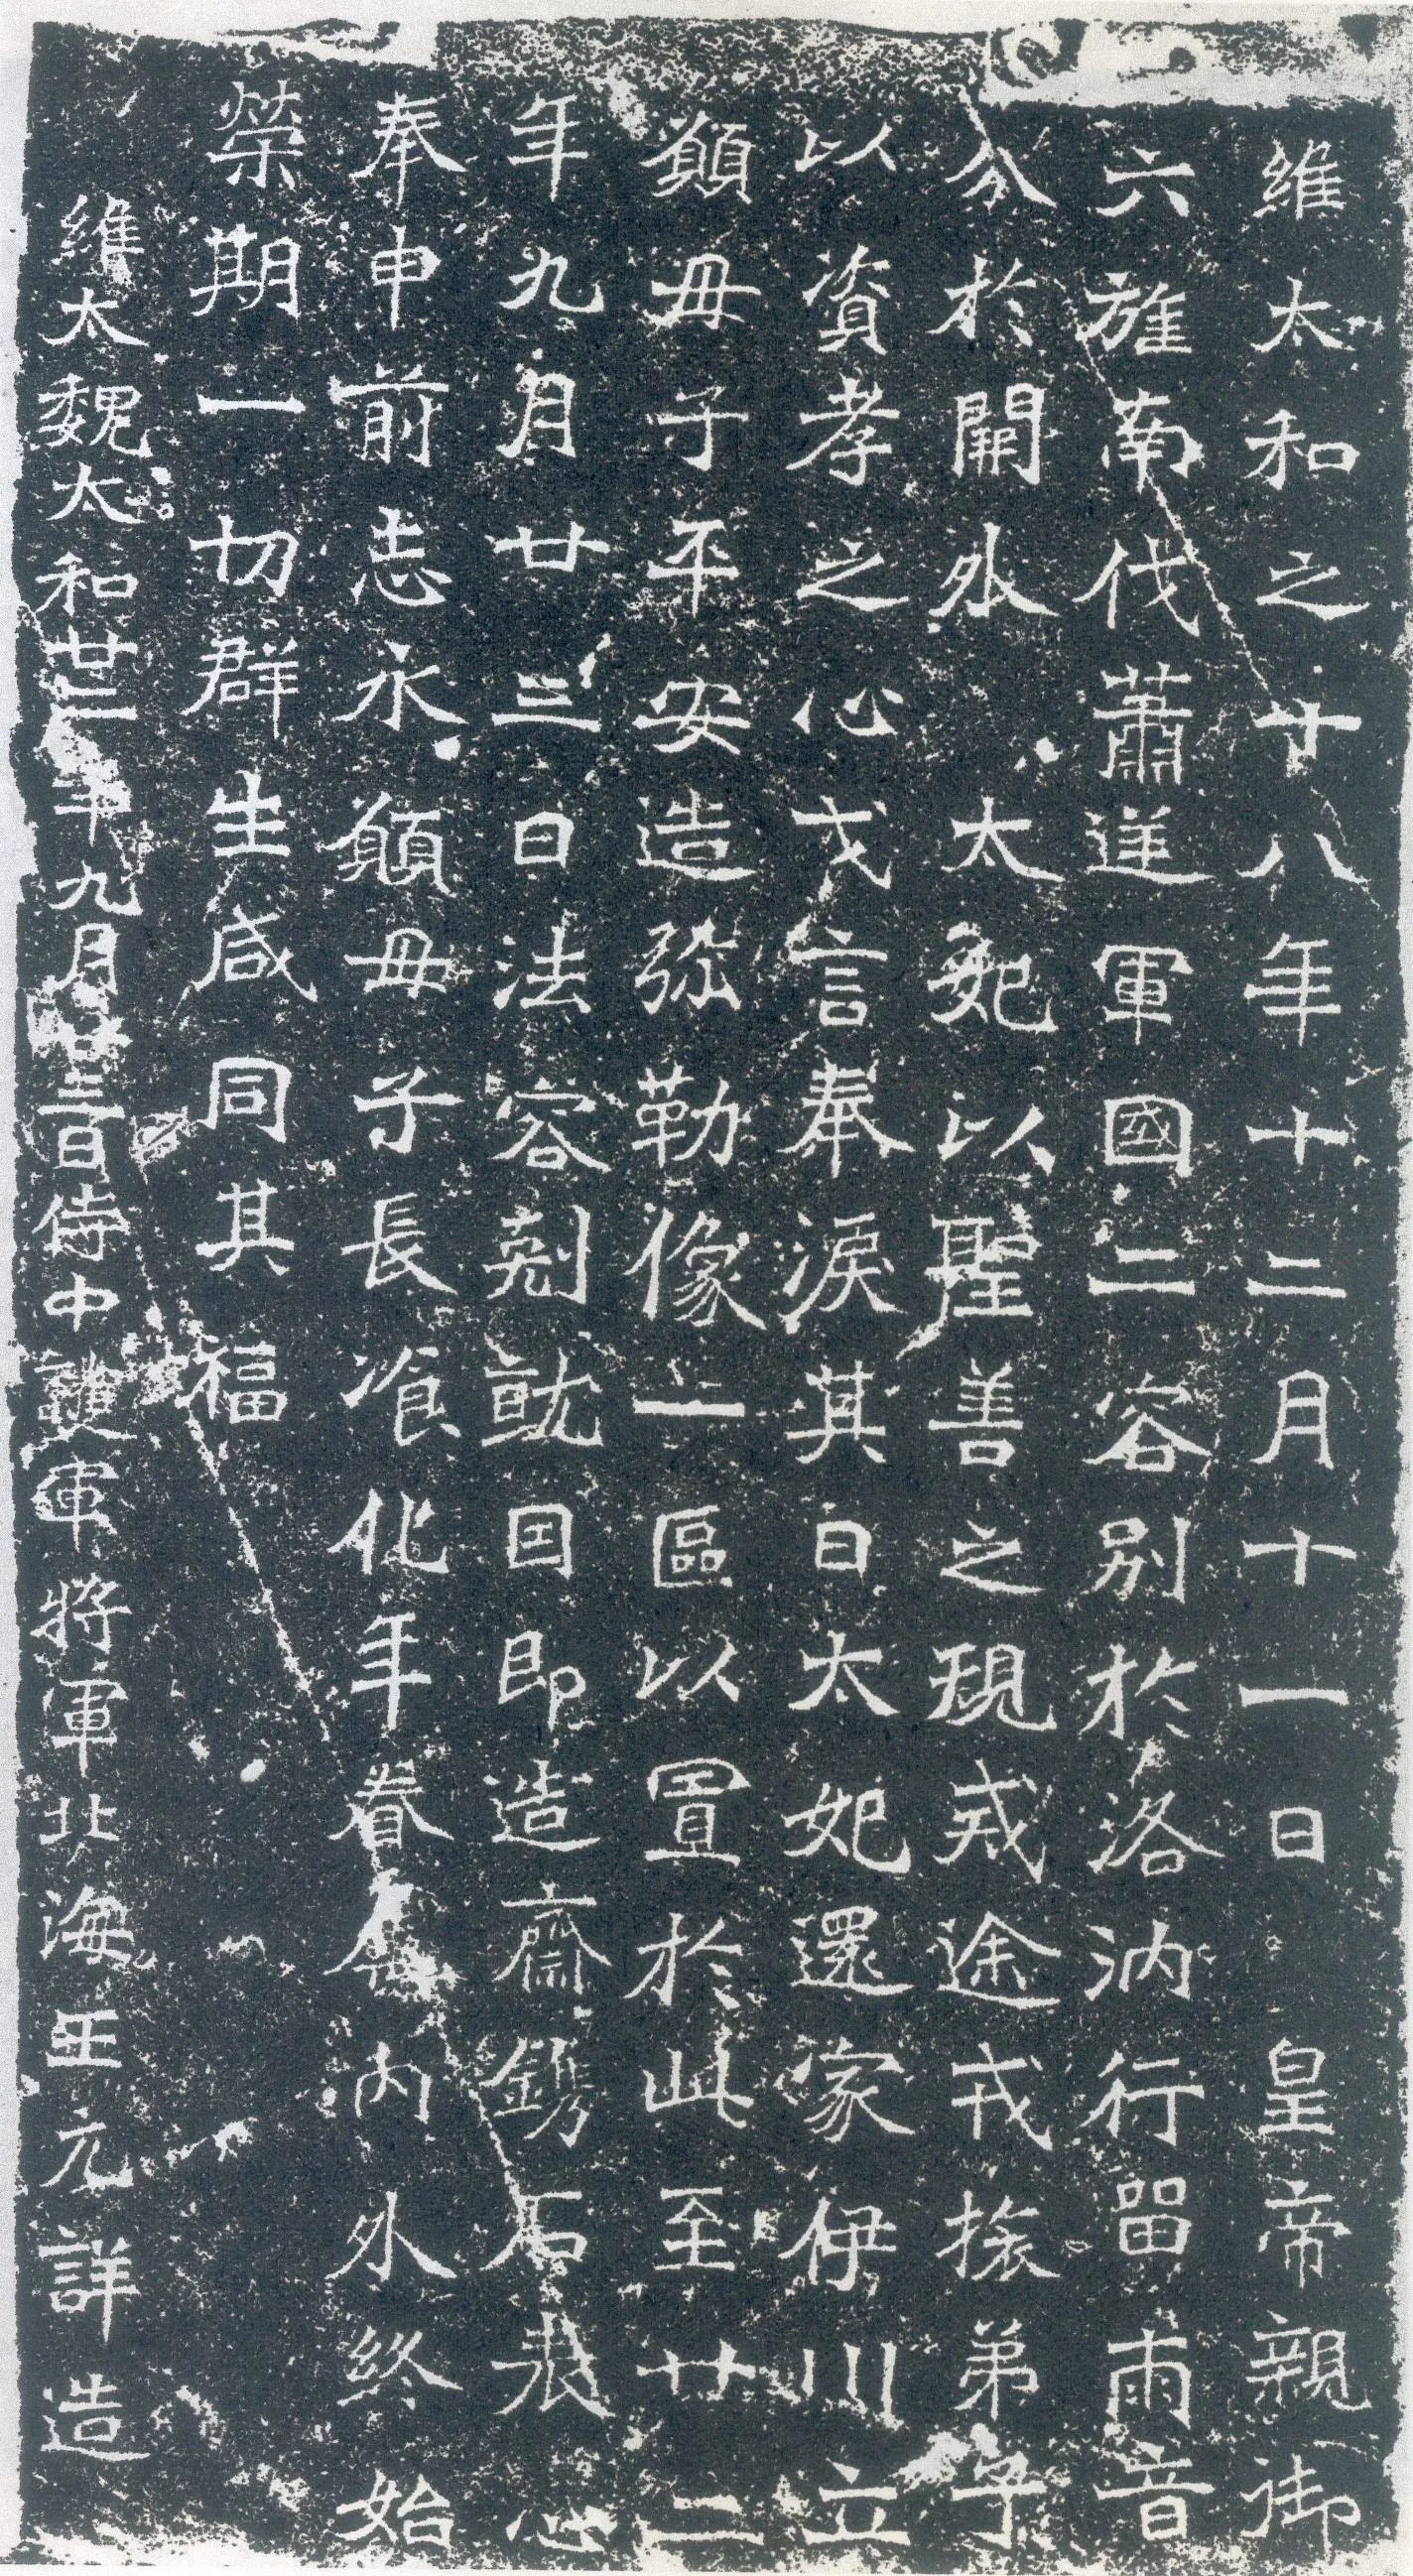 維太和之十八年十二月十一日皇帝親御
六旌南伐蕭逆軍國二容別於洛汭行留兩音
分於闕外太妃以聖善之規戒途戎旅弟子
以資孝之心戈言奉淚其日太妃還家伊川立
願母子平安造弥勒像一區以置於此至廿二
年九月廿三日法容剋就因即造齋鐫石表心
奉申前志永願母子長飡化年眷內外終始
榮期一切群生咸同其福
維太魏太和廿二年九月廿三日侍中護軍將軍北海王元詳造